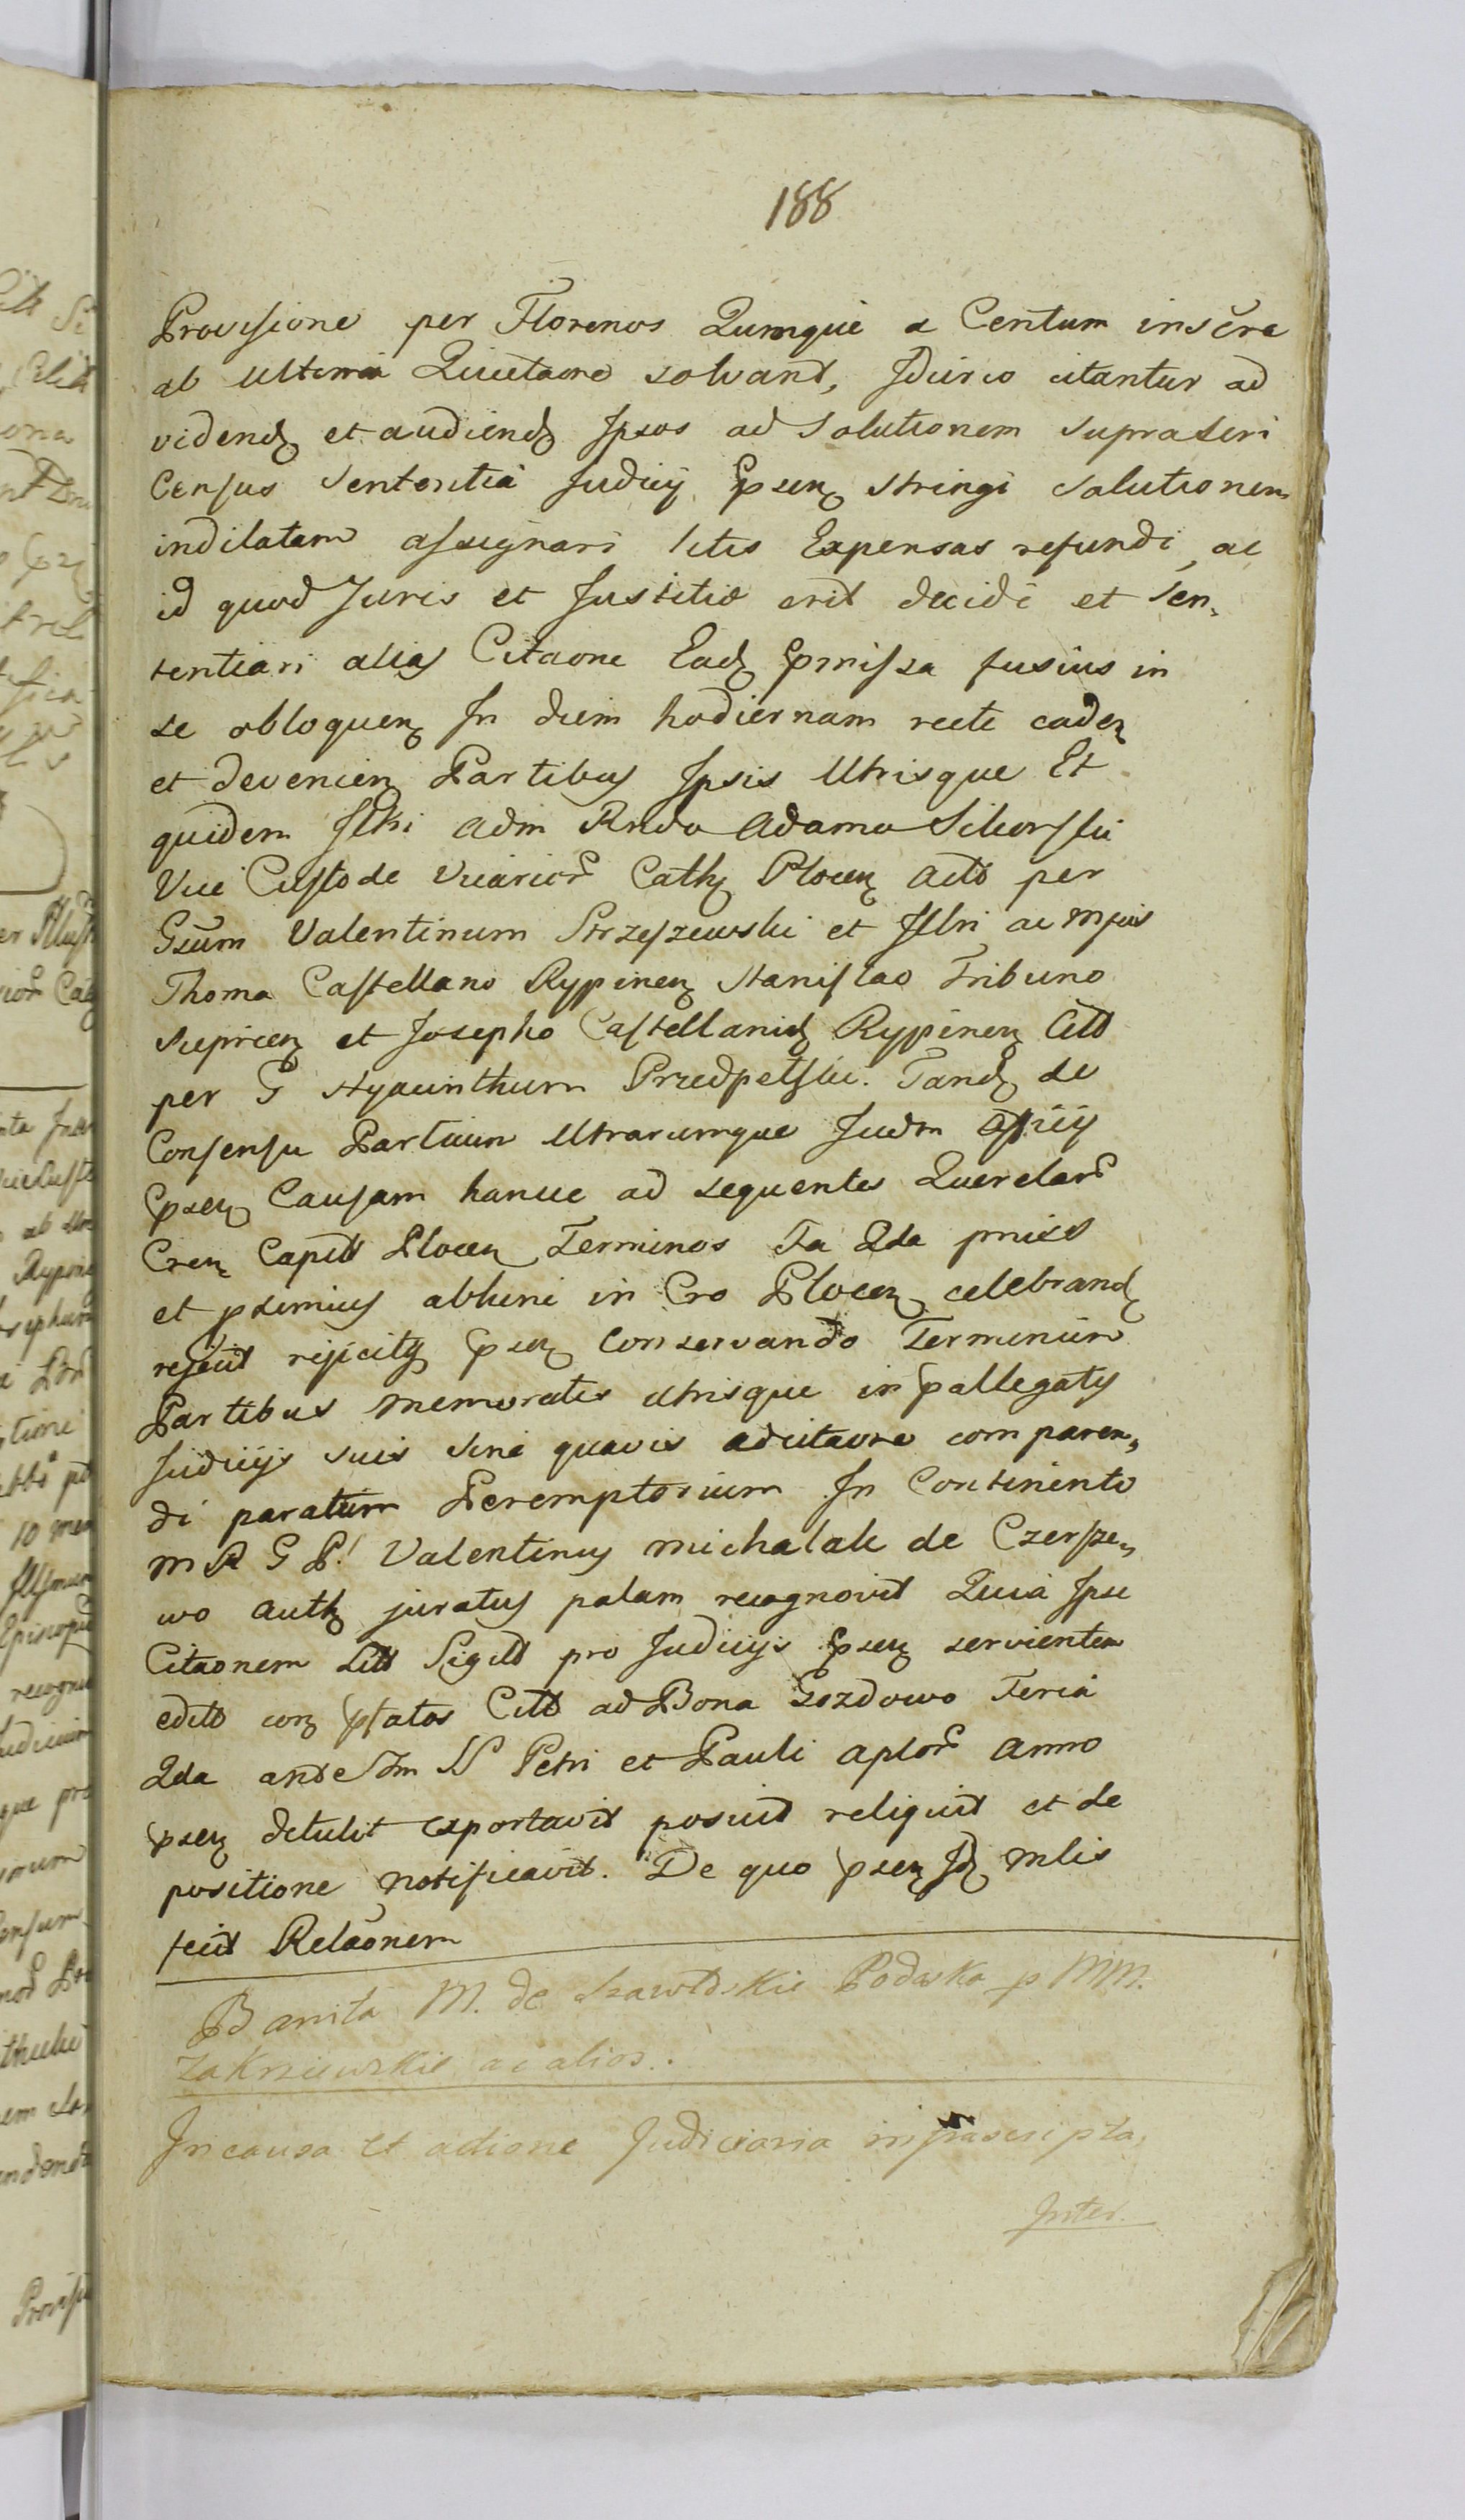 188
Provisione per Florenos Quinque a Centum inscre
ab ultima Quietaone solvant, Idcirco citantur ad
vidend et audiend Ipsos ad Solutionem supraseri
Census Sententia Judicij psen stringi Solutionem
indilatam assignari litis Expensas refundi, ac
id quod Juris et Justitio erit decidi et sen-
tentiari alias Citaone Ead pmissa fusius in
se obloquen In diem hodiernam recte caden
et devenien Partibus Ipsis Utrisque Et
quidem adm Rndo Adamo Sikorski
Vice Custode Vicarior Cath Plocen Actt per
Gsum Valentinum Strzeszewski et Illri ac Mfico
Thoma Castellano Rypinen Stanislao Tribuno
et Josepho Castellanid Rypinen Citt
per G Hyacinthum Przedpelski. Tand de
Consensu Partium Utrarumque Judm
psen Causam hancce ad sequentes Querelar
Cren Capitt Plocen Terminos Fa 2da
et pximius abhinc in Cro Plocen celebrand
rejecit rijicitq psen Conservando Terminum
Partibus memoratis utrisque in pallegatis
Judicijs suis sine quavis adcitaone comparen-
di paratum Peremptorium In Continenti
M R G P! Valentinus Michalak de Czersze-
wo auth juratus palam recognovit Quia Ipse
Citaonem Litt Sigill pro Judicijs psen servientem
editt con pfatos Citt ad Bona Gozdowo Feria
2da ante Fm SS Petri et Pauli Aplor Anno
psen detulit exportavit posuit reliquit et de
positione notificavit. De quo psen Id mlis
fecit Relaonem
Banita M. de Szawlskie Podoska p MM.
Zakrzewskie ac alios.
In causa et actione Judiciaria infrascripta,
Inter.